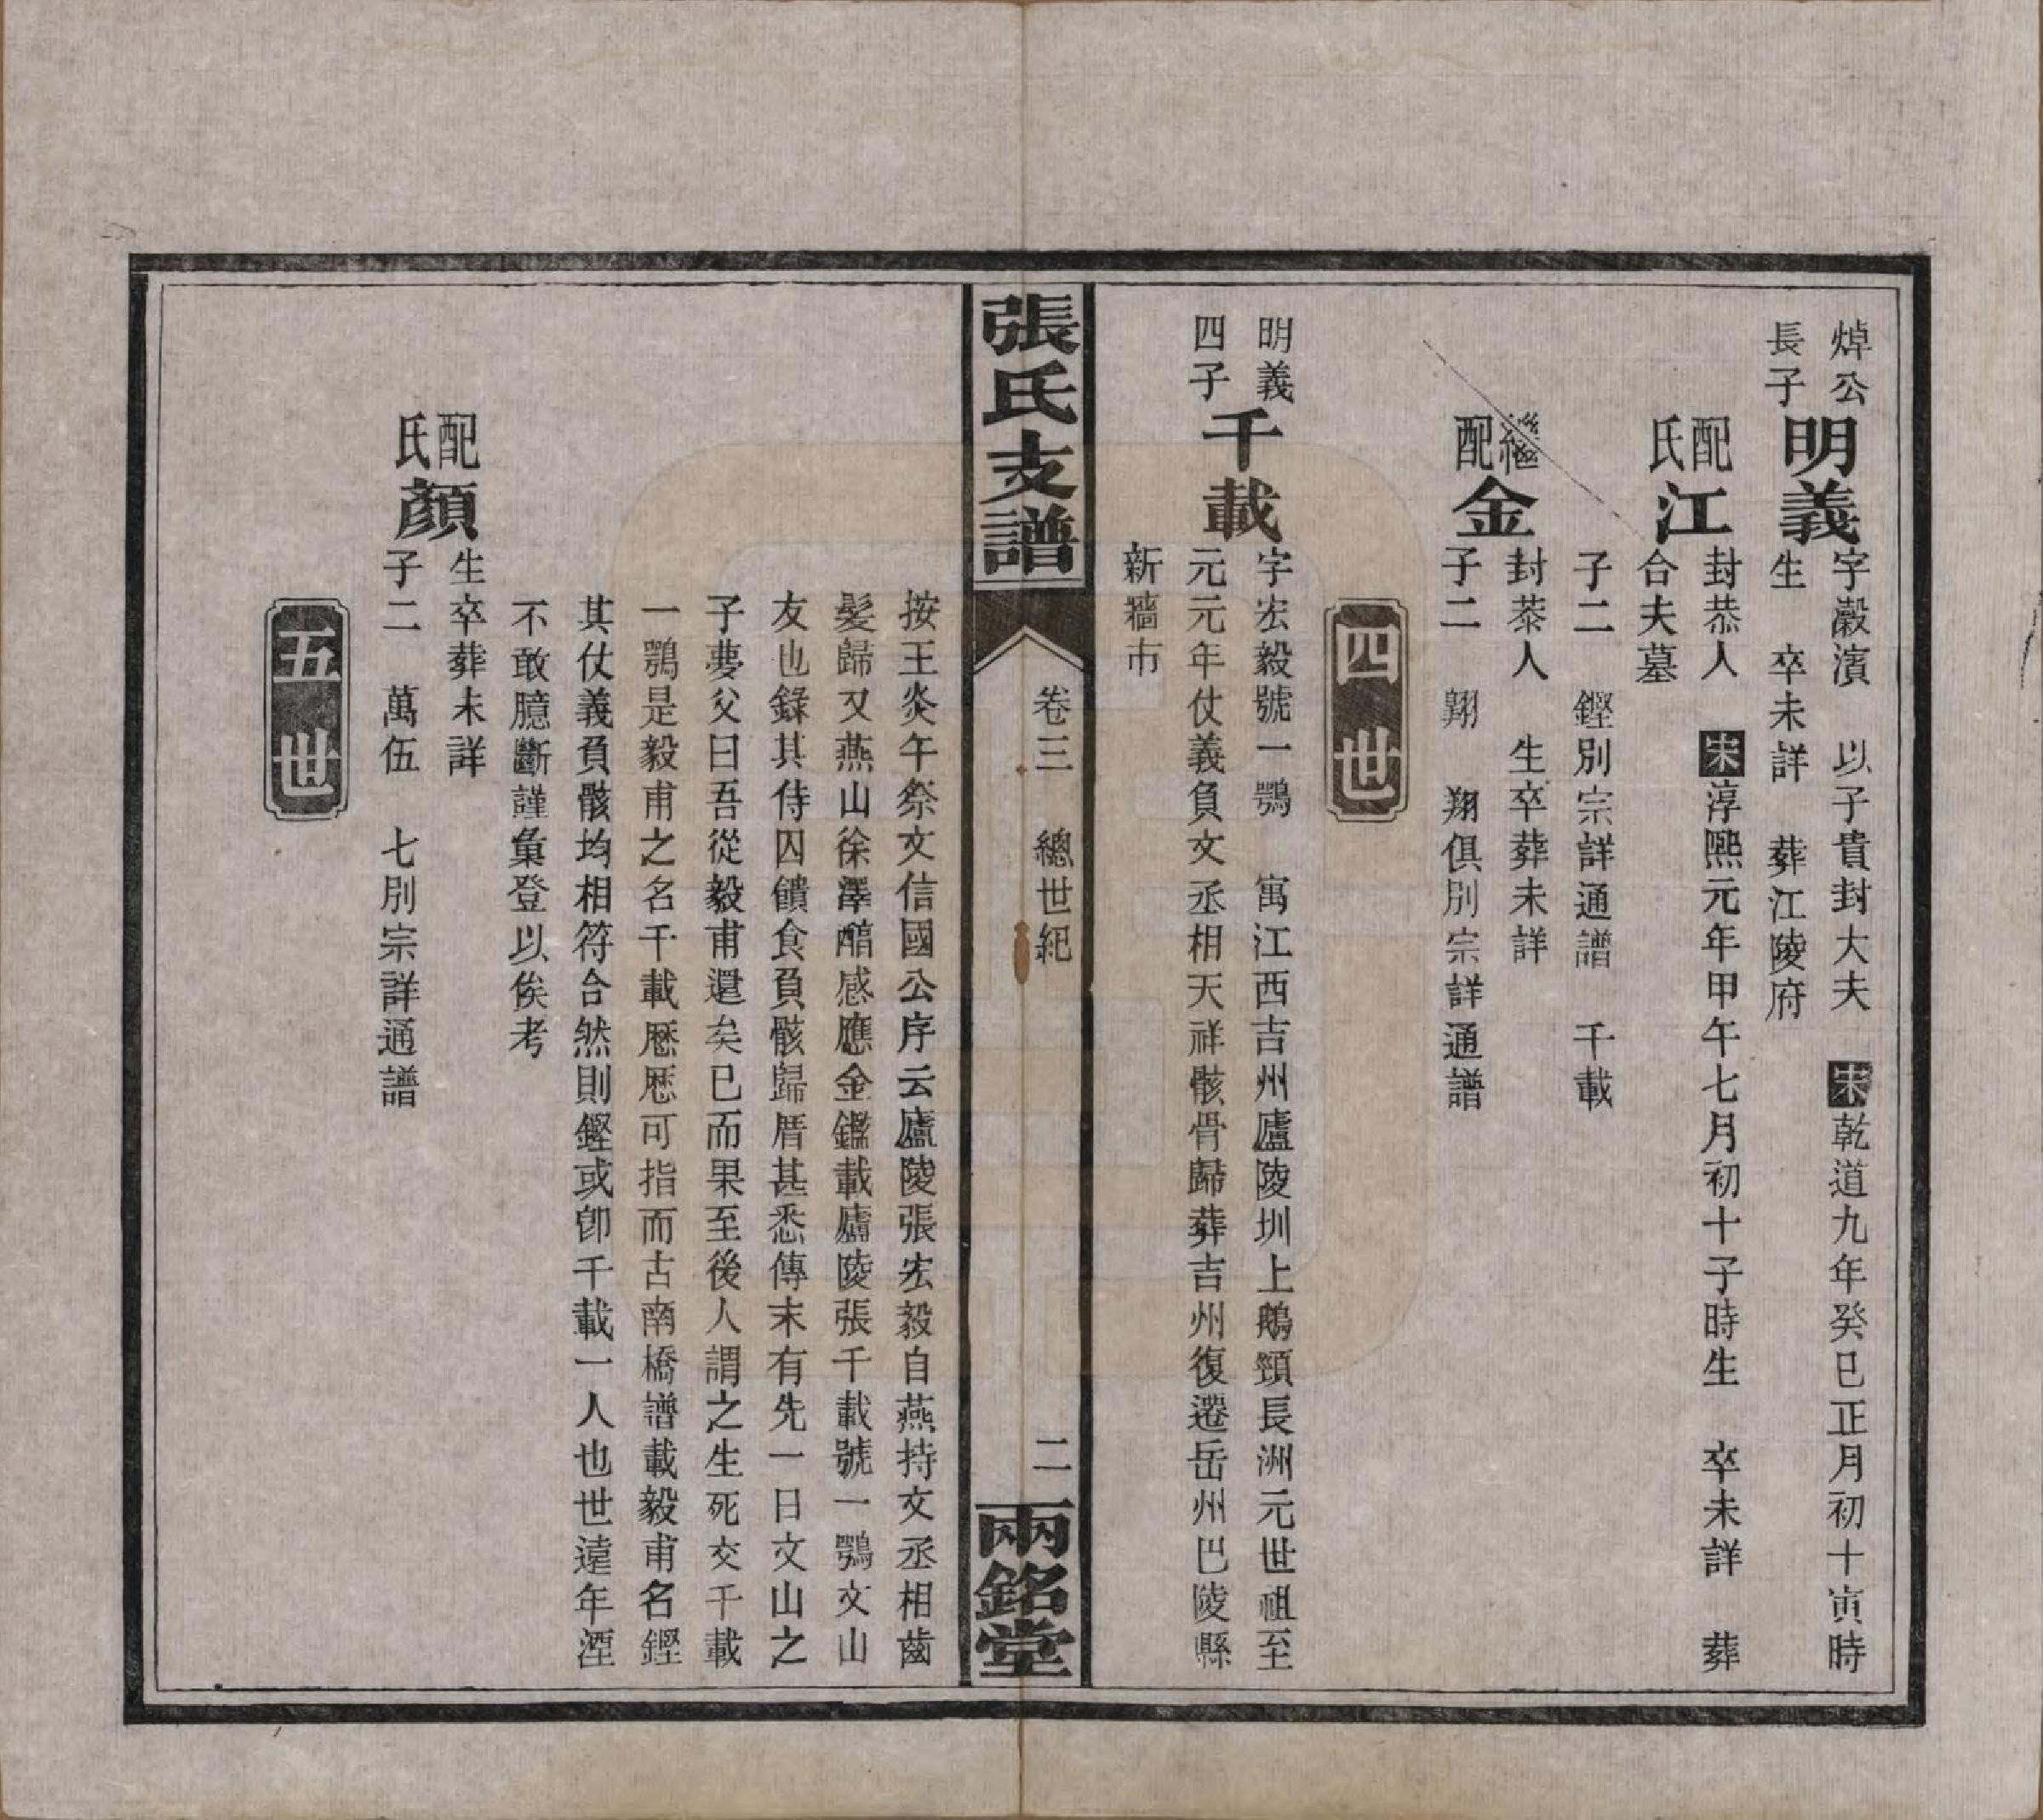 焯公
長子
明義
字瀫濱　以子貴封大夫　宋乾道九年癸巳正月初十寅時
生　卒未詳　葬江陵府
配氏江
封恭人　宋淳熙元年甲午七月初十子時生　卒未詳　葬
合夫墓
子二　鏗別宗詳通譜　千載
繼配金
封恭人　生卒葬未詳
子二　翔　翔俱別宗詳通譜
四世
明義
四子
千載
字宏毅號一鶚　寓江西吉州廬陵圳上鵝頸長洲元世祖至
元元年仗義負文丞相天祥骸骨歸葬吉州復遷岳州巴陵縣
新牆市
張氏支譜
卷三　總世紀
二
兩銘堂
按王炎午祭文信國公序云廬陵張宏毅自燕持文丞相齒
髮歸又燕山徐澤醕感應金鑑載廬陵張千載號一鶚文山
友也錄其侍囚饋食負骸歸厝甚悉傳末有先一日文山之
子夢父曰吾從毅甫還矣已而果至後人謂之生死交千載
一鶚是毅甫之名千載歷歷可指而古南橋譜載毅甫名鏗
其仗義負骸均相符合然則鏗或卽千載一人也世遠年湮
不敢臆斷謹彙登以俟考
配氏顏
生卒葬未詳
子二　萬伍　七別宗詳通譜
五世